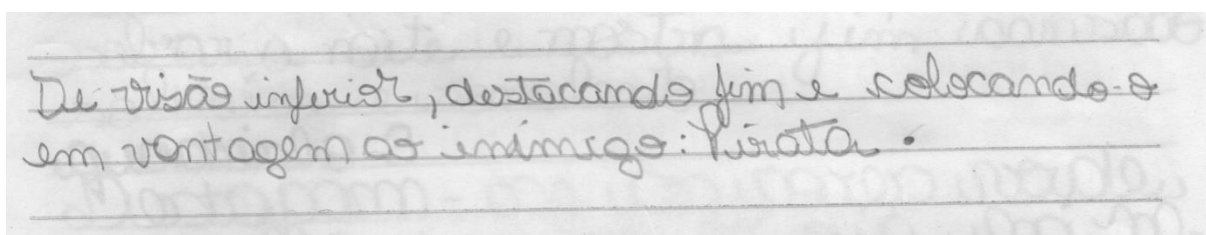 De visão inferior, destacando Jim e colocando-o
em vontagem ao inimigo: Pirata.